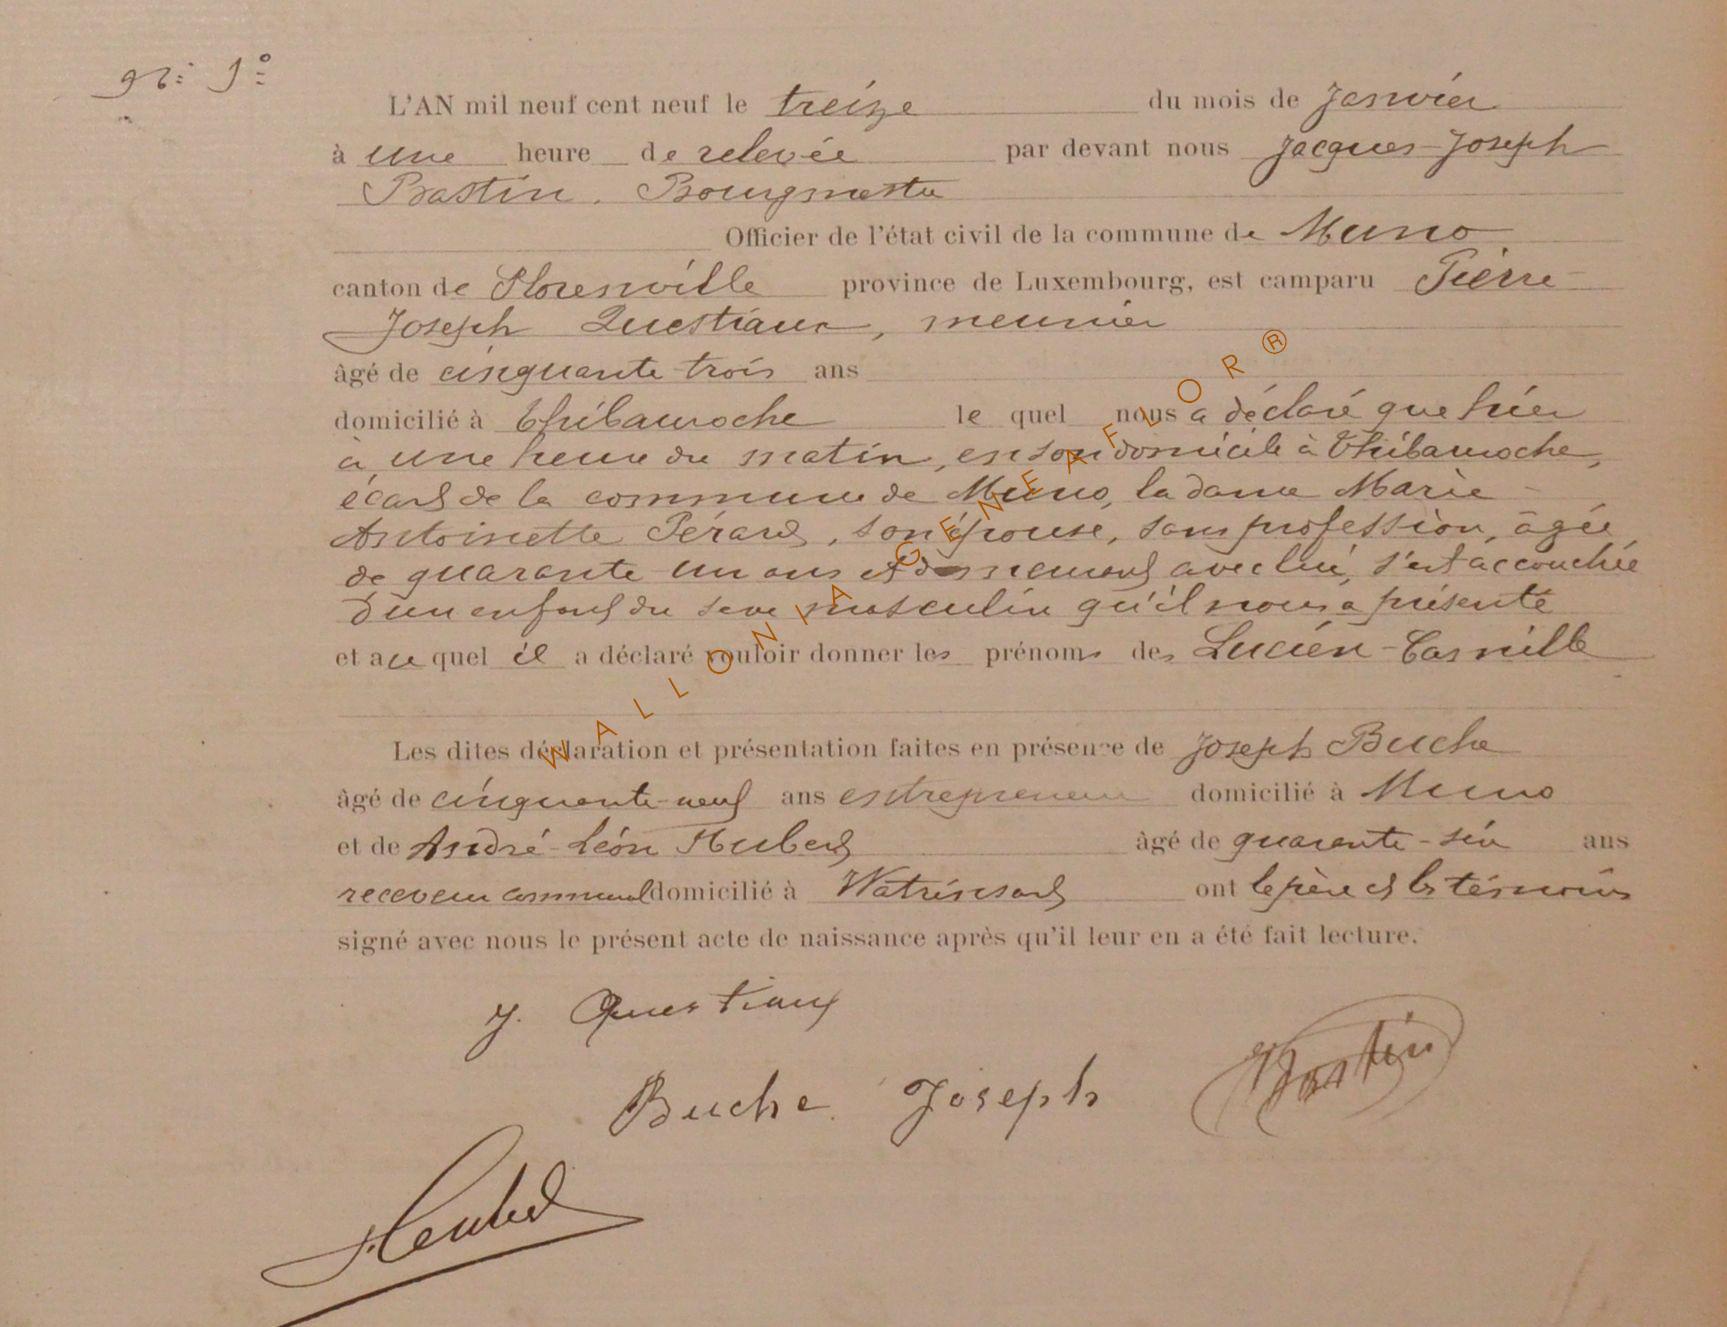 L'AN mil neuf cent neuf le treize du mois de Janvier
à une heure de relevée par devant nous Jacques-Joseph
Bastin, Bourgmestre
Officier de l'état civil de la commune de Muno,
canton de Florenville province de Luxembourg, est camparu Pierre-
Joseph Questiaux, meunier
âgé de cinquante trois ans
domicilié à Thibauroche le quel nous a déclaré que hier
à une heure du matin, en son domicile à Thibauroche,
écart de la commune de Muno, la dame Marie-
Antoinette Pérard, son épouse, sans profession, âgée
de quarante un ans et demeurant avec lui, s'est accouchée
d'un enfant du sexe masculin qu'il nous a présenté
et au quel il a déclaré vouloir donner les prénoms des Lucien-Camille
Les dites déclaration et présentation faites en présence de Joseph Buche
âgé de cinquante-neuf ans entrepreneur domicilié à Muno
et de André-Léon Hubert âgé de quarante-six ans
receveur communal domicilié à Watrinsart ont le père et les témoins
signé avec nous le présent acte de naissance après qu'il leur en a été fait lecture.
J. Questiaux
Bastin
Buche Joseph
WALLONIA GENEAFLOR®